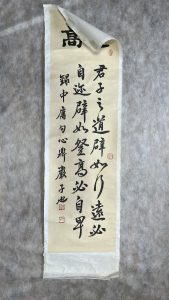 高
君子之道辟如行遠必
自迩辟如登高必自卑
錄中庸句心